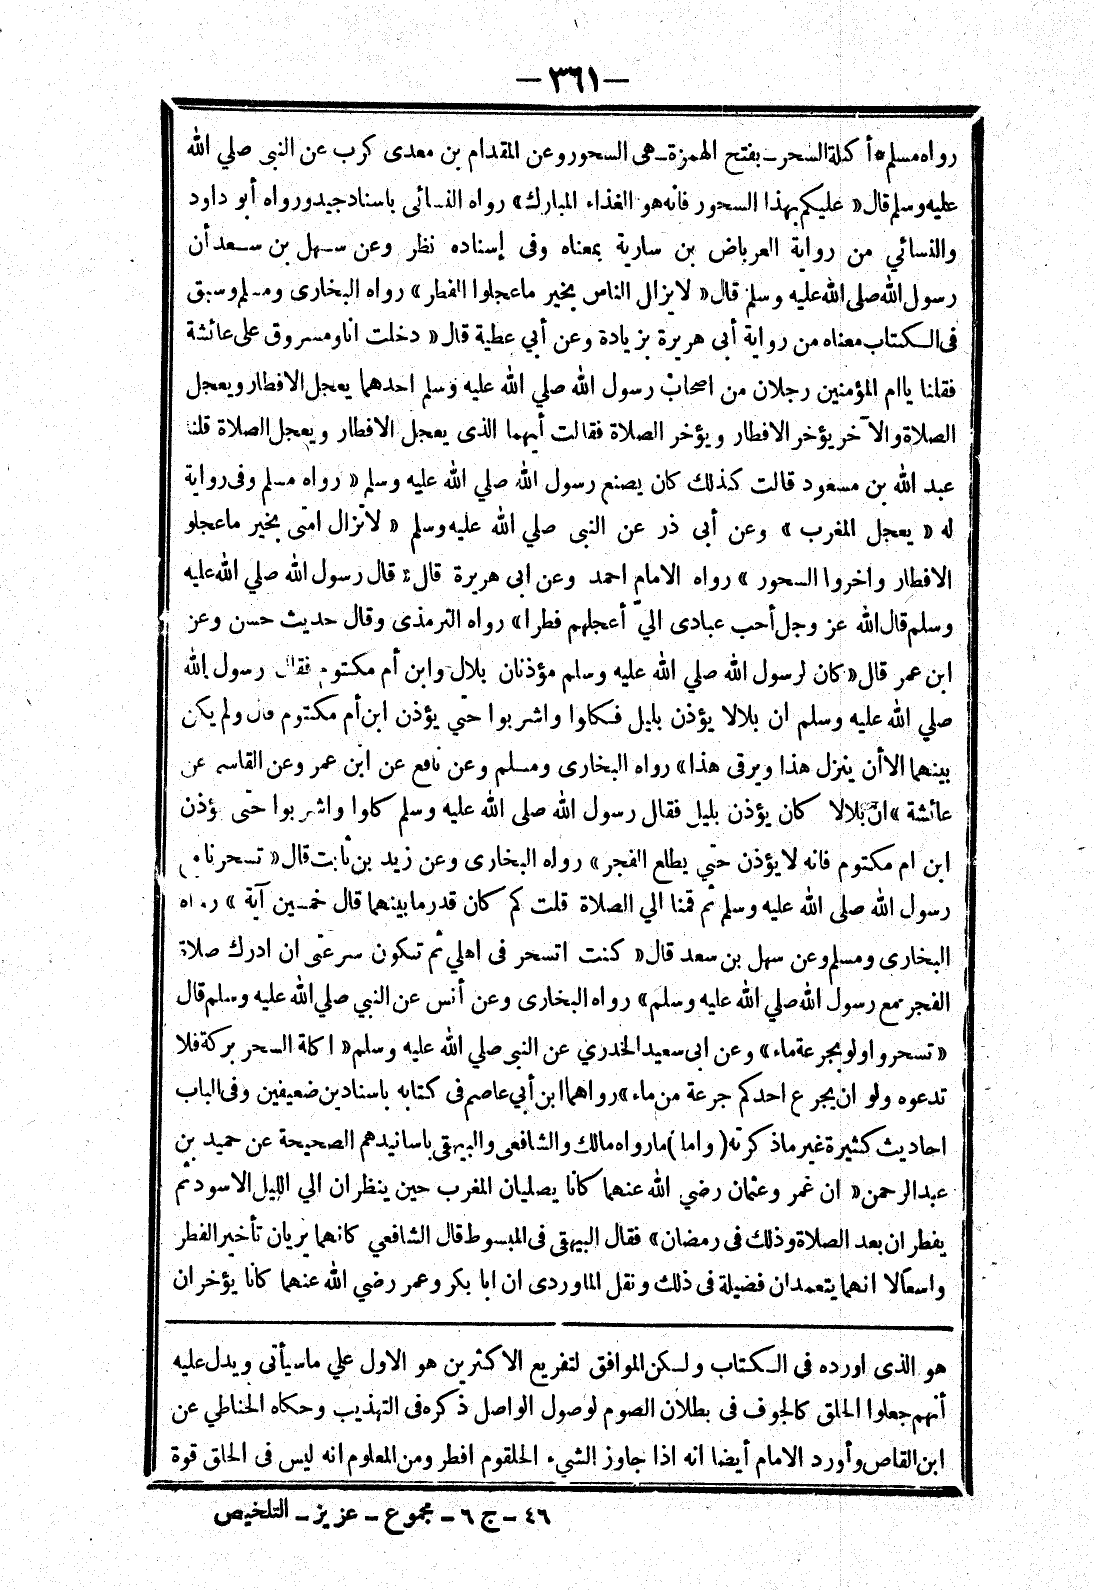 — ٣٦١ —
رواه مسلم * أكلة السحر ـ بفتح الهمزة ـ هى السحور وعن المقدام بن معدى كرب عن النبى صلي الله
عليه وسلم قال « عليكم بهذا السحور فانه هو الغذاء المبارك » رواه النسائى باسناد جيد ورواه أبو داود
والنسائي من رواية العرباض بن سارية بمعناه وفى إسناده نظر وعن سهل بن سعد أن
رسول الله صلى الله عليه وسلم قال « لا يزال الناس بخير ما عجلوا الفطر » رواه البخارى ومسلم وسبق
فى الكتاب معناه من رواية أبى هريرة بزيادة وعن أبي عطية قال « دخلت انا ومسروق على عائشة
فقلنا ياام المؤمنين رجلان من اصحاب رسول الله صلي الله عليه وسلم احدهما يعجل الافطار ويعجل
الصلاة والآخر يؤخر الافطار ويؤخر الصلاة فقالت أيهما الذى يعجل الافطار ويعجل الصلاة قلنا
عبد الله بن مسعود قالت كذلك كان يصنع رسول الله صلي الله عليه وسلم « رواه مسلم وفى رواية
له « يعجل المغرب » وعن أبى ذر عن النبى صلي الله عليه وسلم « لا تزال امتى بخير ما عجلو
الافطار واخروا السحور » رواه الامام احمد وعن ابى هريرة قال : قال رسول الله صلي الله عليه
وسلم قال الله عز وجل أحب عبادى اليّ أعجلهم فطرا » رواه الترمذى وقال حديث حسن وعن
ابن عمر قال « كان لرسول الله صلي الله عليه وسلم مؤذنان بلال وابن أم مكتوم فقال رسول الله
صلي الله عليه وسلم ان بلالا يؤذن بليل فكلوا واشربوا حتى يؤذن ابن أم مكتوم قال ولم يكن
بينهما الا أن ينزل هذا ويرقى هذا » رواه البخارى ومسلم وعن نافع عن ابن عمر وعن القاسم عن
عائشة » ان بلالا كان يؤذن بليل فقال رسول الله صلى الله عليه وسلم كلوا واشربوا حتى يؤذن
ابن ام مكتوم فانه لا يؤذن حتي يطلع الفجر » رواه البخارى وعن زيد بن ثابت قال « تسحرنا مع
رسول الله صلى الله عليه وسلم ثم قمنا الي الصلاة قلت كم كان قدر ما بينهما قال خمسين آية » رواه
البخارى ومسلم وعن سهل بن سعد قال « كنت اتسحر فى اهلي ثم تكون سرعتى ان ادرك صلاة
الفجر مع رسول الله صلي الله عليه وسلم » رواه البخارى وعن أنس عن النبي صلي الله عليه وسلم قال
« تسحروا ولو بجرعة ماء » وعن ابى سعيد الخدري عن النبى صلي الله عليه وسلم « اكلة السحر بركة فلا
تدعوه ولو ان يجرع احدكم جرعة من ماء » رواهما ابن أبي عاصم فى كتابه باسنادين ضعيفين وفى الباب
احاديث كثيرة غير ما ذكرته ( واما ) ما رواه مالك والشافعى والبيهقى باسانيدهم الصحيحة عن حميد بن
عبد الرحمن « ان عمر وعثمان رضي الله عنهما كانا يصليان المغرب حين ينظران الي الليل الاسود ثم
يفطران بعد الصلاة وذلك فى رمضان » فقال البيهقى فى المبسوط قال الشافعي كانهما يريان تأخير الفطر
واسعًا لا انهما يتعمدان فضيلة فى ذلك ونقل الماوردى ان ابا بكر وعمر رضي الله عنهما كانا يؤخران
هو الذى اورده فى الكتاب ولكن الموافق لتفريع الاكثرين هو الاول علي ما سيأتى ويدل عليه
أنهم جعلوا الحلق كالجوف فى بطلان الصوم لوصول الواصل ذكره فى التهذيب وحكاه الحناطي عن
ابن القاص وأورد الامام أيضا انه اذا جاوز الشيء الحلقوم افطر ومن المعلوم انه ليس فى الحلق قوة
٤٦ ـ ج ٦ ـ مجموع ـ عزيز ـ التلخيص